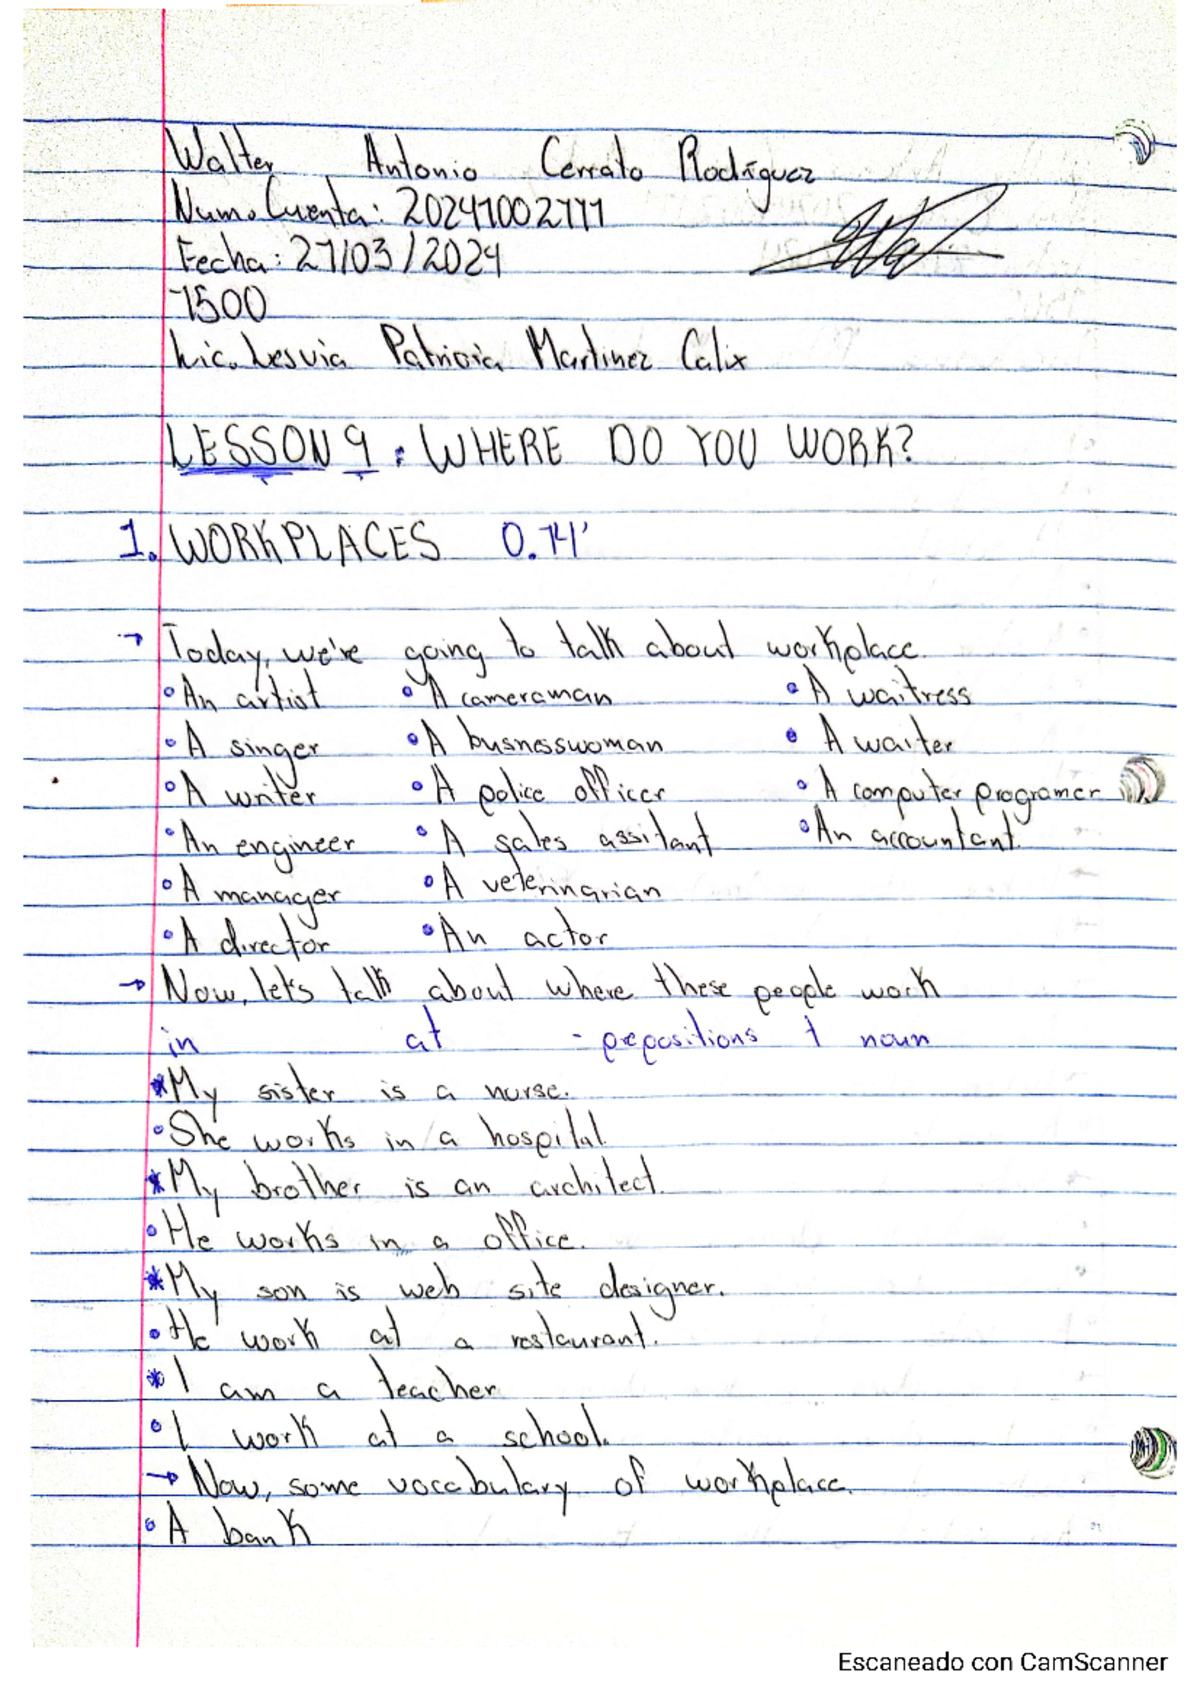 Walter Antonio Cerrato Rodríguez
Num. Cuenta: 20241002111
Fecha: 27/03/2024
1500
Lic. Lesvia Patricia Martinez Calix
LESSON 9: WHERE DO YOU WORK?
1. WORKPLACES 0.14'
→ Today, we're going to talk about workplace.
• An artist • A cameraman • A waitress
• A singer • A busnesswoman • A waiter
• A writer • A police officer • A computer programer
• An engineer • A sales assitant • An accountant.
• A manager • A veterinarian
• A director • An actor
→ Now, let's talk about where these people work
in at - prepositions + noun
* My sister is a nurse.
• She works in a hospital.
* My brother is an architect.
• He works in a office.
* My son is web site designer.
• He work at a restaurant.
* I am a teacher
• I work at a school.
→ Now, some vocabulary of workplace.
• A bank
Escaneado con CamScanner